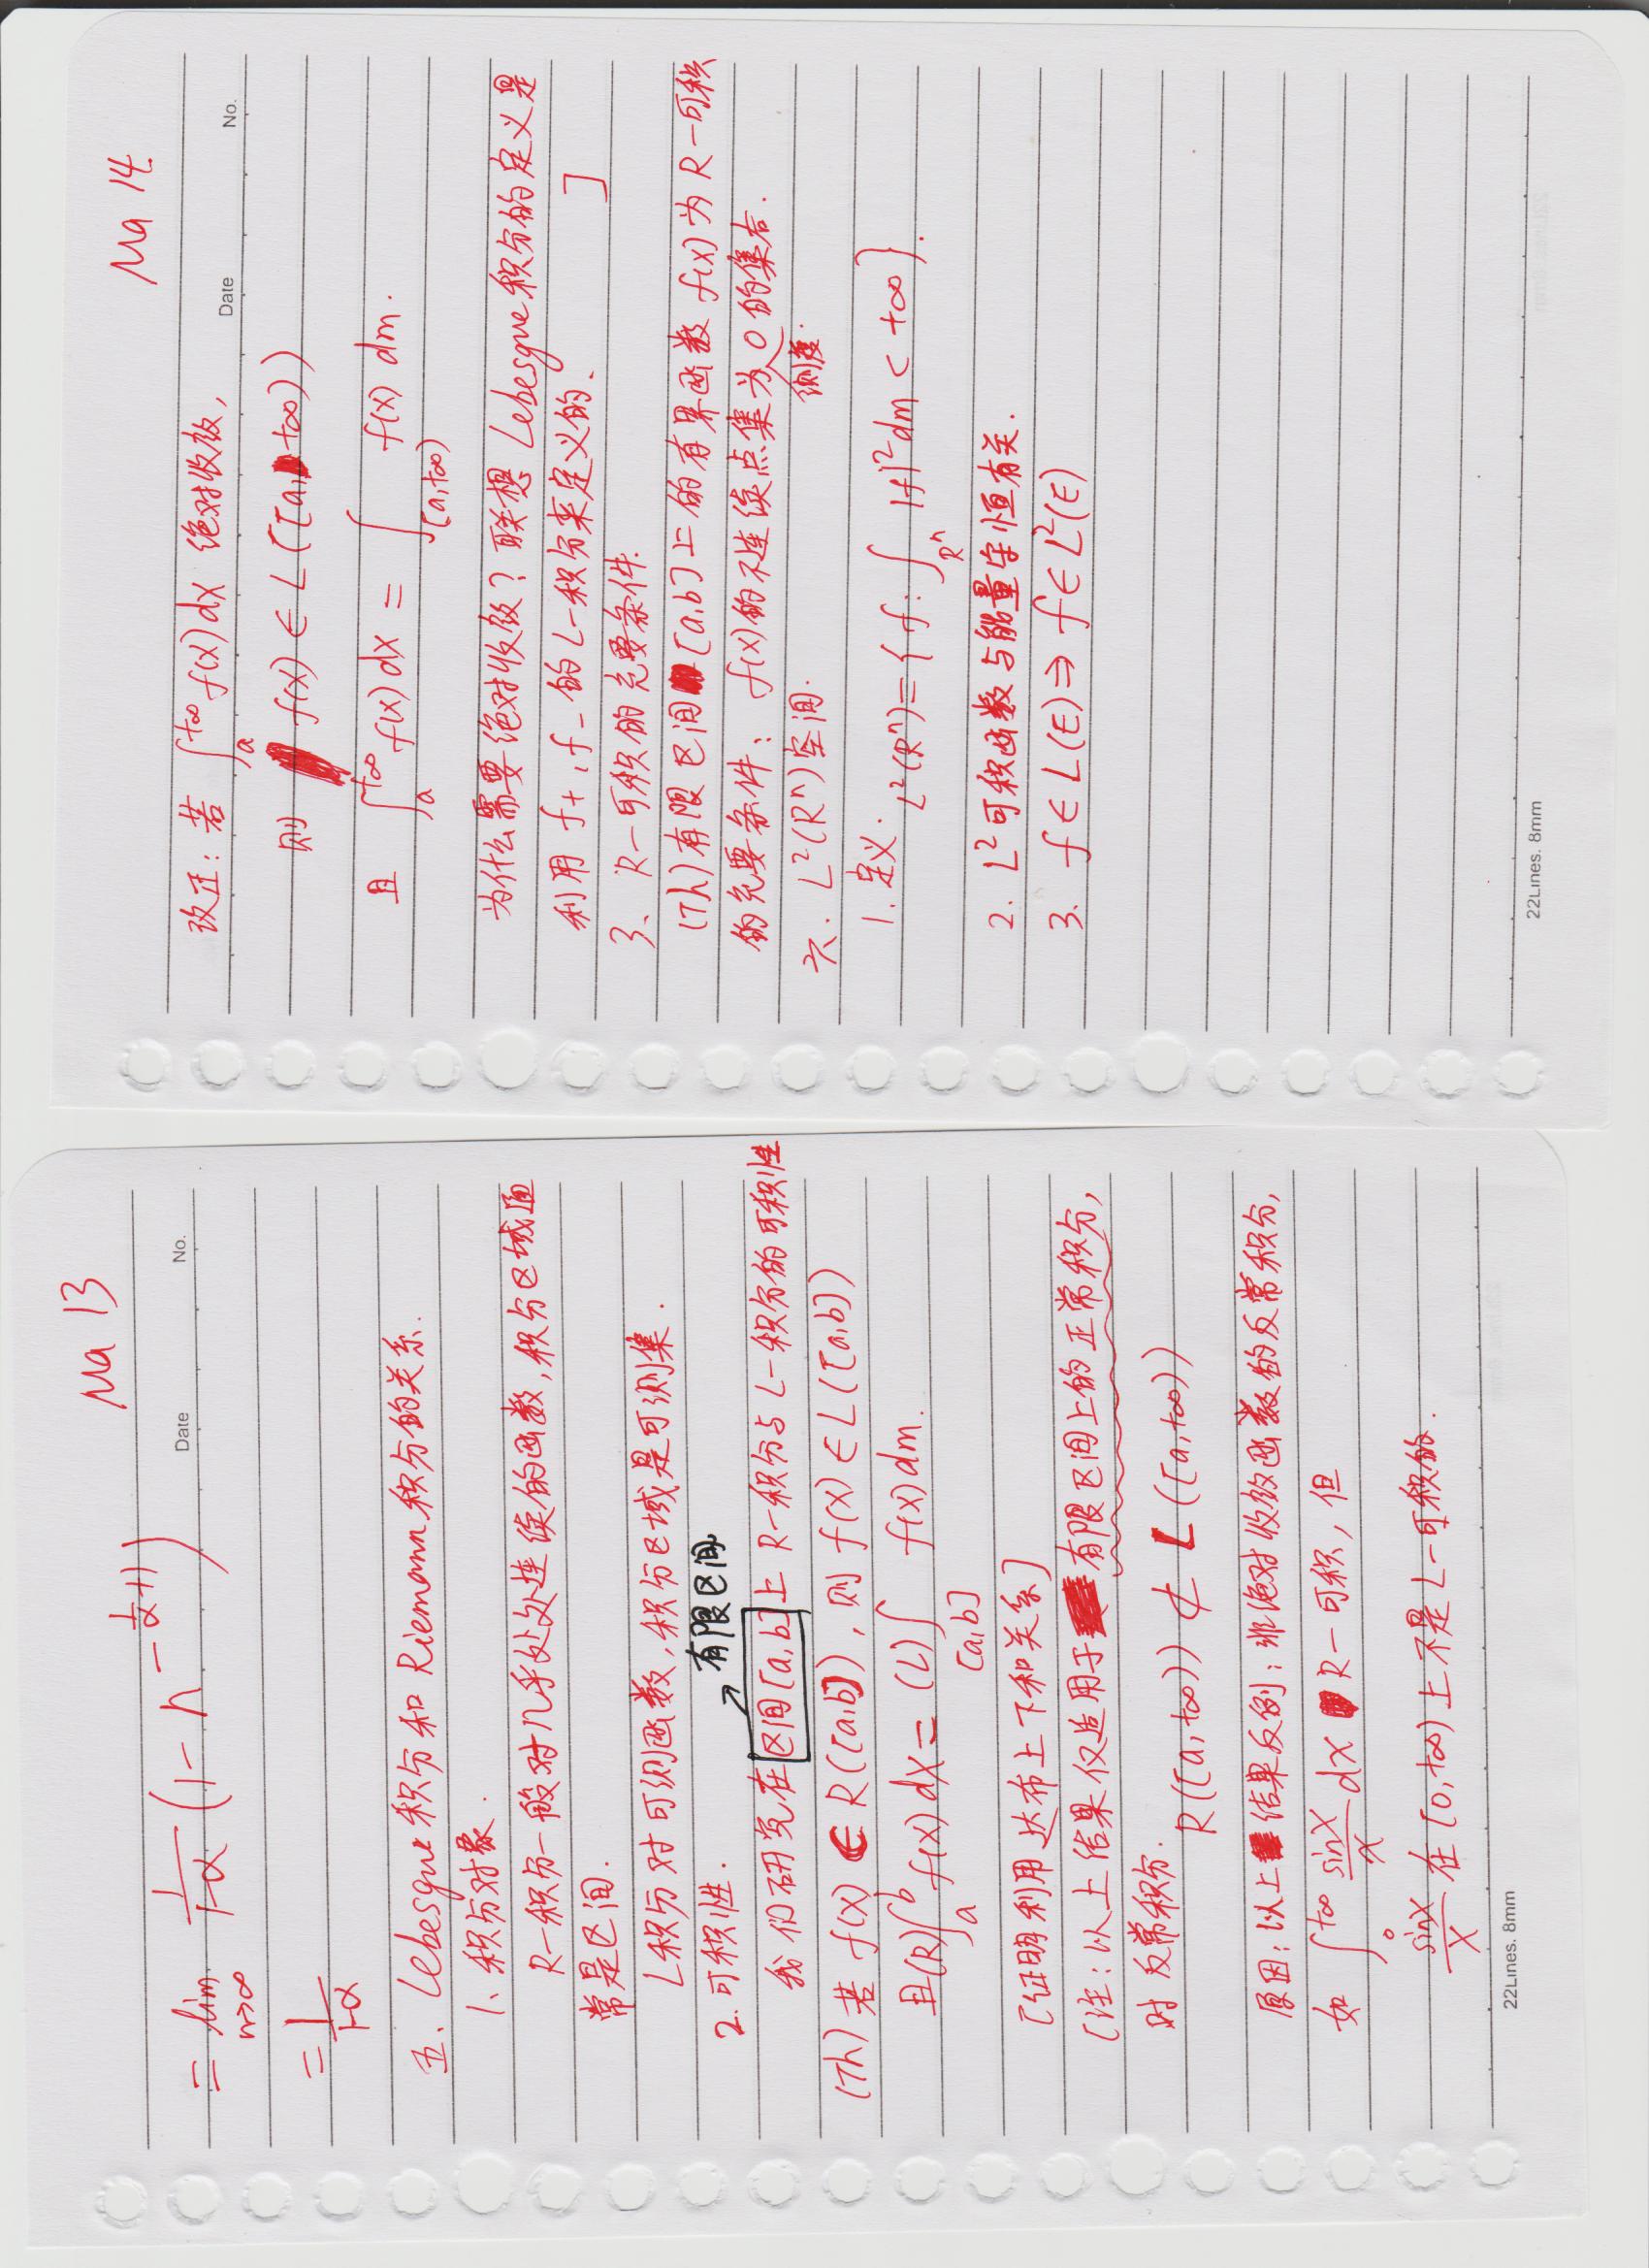 Ma 13
Date No.
= lim n→∞ 1/(1-α) (1 - n^(-1/α+1))
= 1/(1-α)
五、Lebesgue 积分和 Riemann 积分的关系.
1、积分对象.
R-积分一般对几乎处处连续的函数,积分区域通
常是区间.
L积分对可测函数,积分区域是可测集.
2.可积性.
有限区间
我们研究在区间[a,b]上 R-积分与 L-积分的可积性
(Th) 若 f(x) ∈ R([a,b]),则 f(x) ∈ L([a,b])
且(R)∫_a^b f(x)dx = (L)∫_[a,b] f(x)dm.
[证明利用达布上下和关系]
[注:以上结果仅适用于有限区间上的正常积分,
对反常积分.
R([a,+∞)) ⊄ L([a,+∞))
原因:以上结果反例:非绝对收敛函数的反常积分,
如 ∫_0^+∞ sinx/x dx R-可积,但
sinx/x 在[0,+∞)上不是L-可积的.
22Lines. 8mm
Ma 14.
改正:若 ∫_a^+∞ f(x)dx 绝对收敛,
Date No.
则 f(x) ∈ L([a,+∞))
且 ∫_a^+∞ f(x)dx = ∫_[a,+∞) f(x) dm.
为什么需要绝对收敛?联想 Lebesgue积分的定义是
利用 f+,f- 的L-积分来定义的、 ]
3、R-可积的充要条件.
(Th)有限区间[a,b]上的有界函数 f(x)为 R-可积
的充要条件:f(x)的不连续点集为测度0的集合.
六.L²(Rⁿ)空间.
1.定义.
L²(Rⁿ)={f:∫_Rⁿ |f|²dm < +∞}.
2. L²可积函数与能量守恒有关.
3. f∈L(E) ⇒ f∈L²(E)
22Lines. 8mm